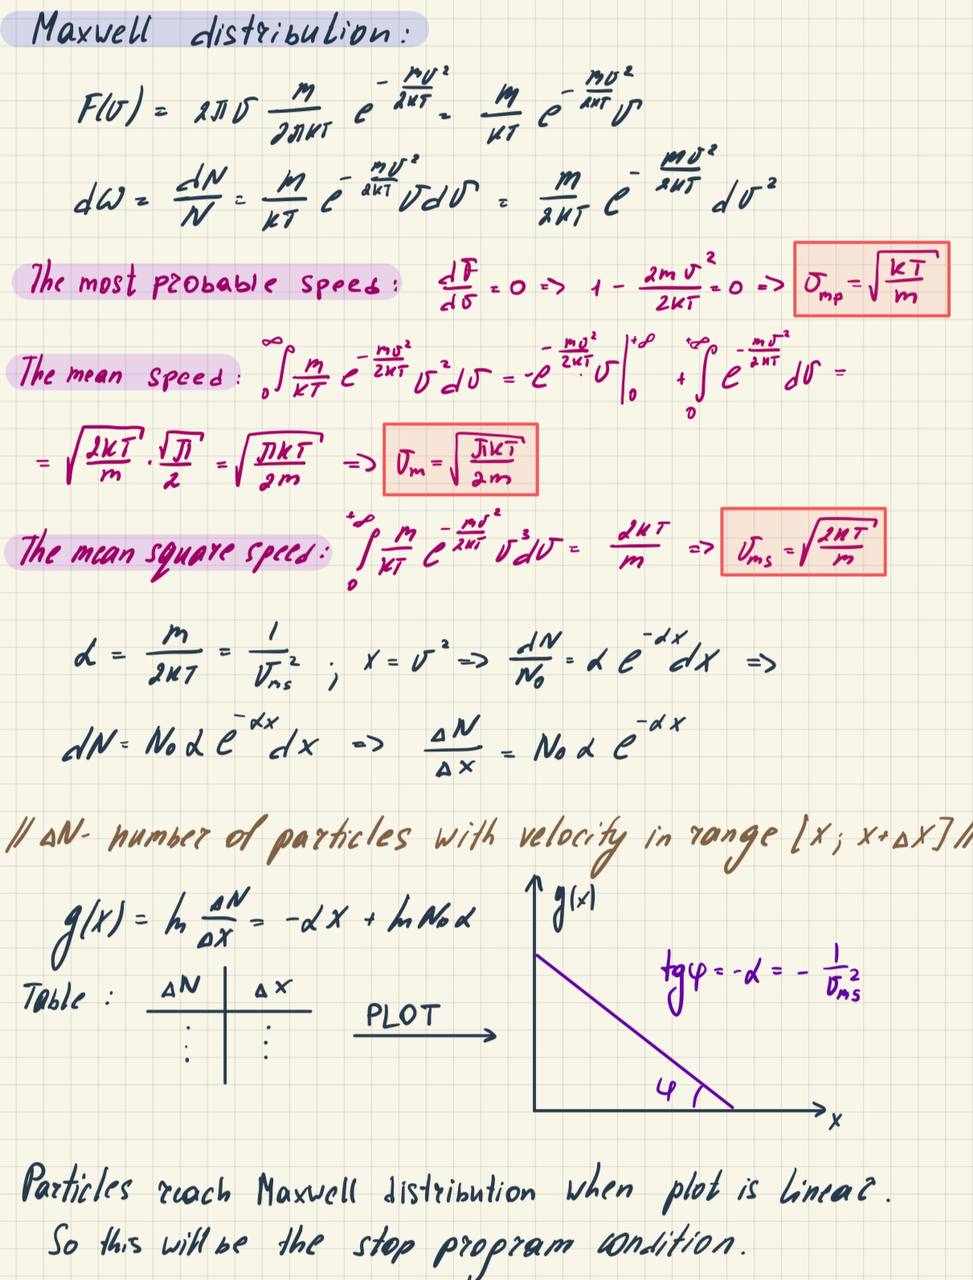 Maxwell distribution:
F(υ) = 2πυ m/2πkT e^(-mυ²/2kT) = m/kT e^(-mυ²/2kT) υ
dω = dN/N = m/kT e^(-mυ²/2kT) υdυ = m/2kT e^(-mυ²/2kT) dυ²
The most probable speed: dF/dυ = 0 => 1 - 2mυ²/2kT = 0 => υ_mp = √(kT/m)
The mean speed: ∫₀^∞ m/kT e^(-mυ²/2kT) υ²dυ = -e^(-mυ²/2kT) υ |₀^+∞ + ∫₀^+∞ e^(-mυ²/2kT) dυ =
= √(2kT/m) · √π/2 = √(πkT/2m) => υ_m = √(πkT/2m)
The mean square speed: ∫₀^+∞ m/kT e^(-mυ²/2kT) υ³dυ = 2kT/m => υ_ms = √(2kT/m)
α = m/2kT = 1/υ_ms² ; x = υ² => dN/N₀ = α e^(-αx) dx =>
dN = N₀ α e^(-αx) dx => ΔN/Δx = N₀ α e^(-αx)
// ΔN - number of particles with velocity in range [x; x+Δx] //
g(x) = ln ΔN/Δx = -αx + ln N₀α
g(x)
tgφ = -α = - 1/υ_ms²
Table: ΔN | Δx
PLOT
φ
x
Particles reach Maxwell distribution when plot is linear.
So this will be the stop program condition.